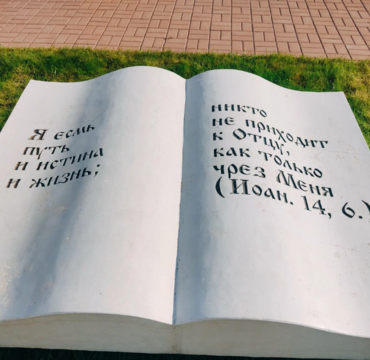 Я есмь
путь
и истина
и жизнь;
никто
не приходит
к Отцу,
как только
чрез Меня
(Иоан. 14, 6.)